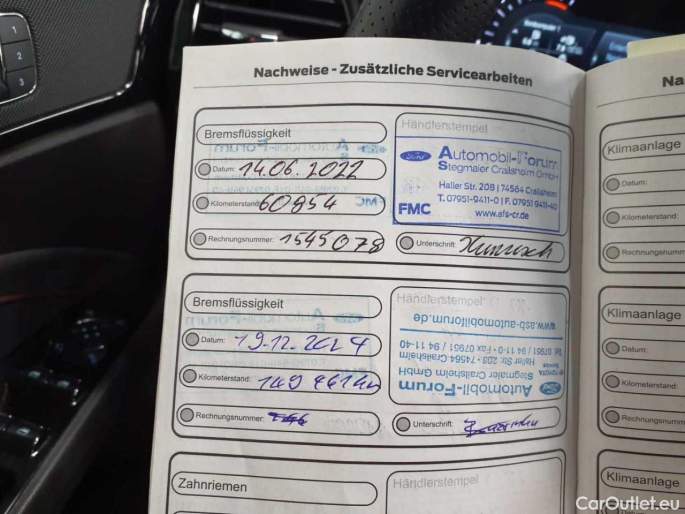 Nachweise - Zusätzliche Servicearbeiten
Bremsflüssigkeit
Datum: 14.06.2022
Kilometerstand: 60854
Rechnungsnummer: 1545078
Händlerstempel
Ford
Automobil-Forum
Stegmaier Crailsheim GmbH
Haller Str. 208 | 74564 Crailsheim
T. 07951-9411-0 | F. 07951 9411-40
FMC
www.afs-cr.de
Unterschrift:
Bremsflüssigkeit
Datum: 19.12.2024
Kilometerstand:
Rechnungsnummer:
Händlerstempel
Automobil-Forum
Stegmaier Crailsheim GmbH
Haller Str. 203 · 74564 Crailsheim
Tel. 07951 / 94 11-0 · Fax 07951 / 94 11-40
www.asb-automobilforum.de
Unterschrift:
Zahnriemen
Händlerstempel
Na
Klimaanlage
Datum:
Kilometerstand:
Rechnungsnumm
Klimaanlage
Datum:
Kilometerstand:
Rechnungsnumm
Klimaanlage
1
2
3
CarOutlet.eu